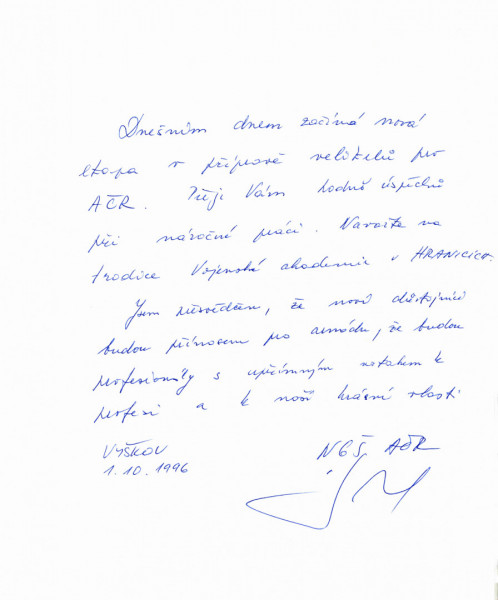 Dnešním dnem začíná nová
etapa v přípravě velitelů pro
AČR. Přeji Vám hodně úspěchů
při náročné práci. Navažte na
tradice Vojenské akademie v HRANICÍCH.
Jsem přesvědčen, že noví důstojníci
budou přínosem pro armádu, že budou
profesionály s upřímným vztahem k
profesi a k naší krásné vlasti.
VYŠKOV NGŠ AČR
1.10.1996